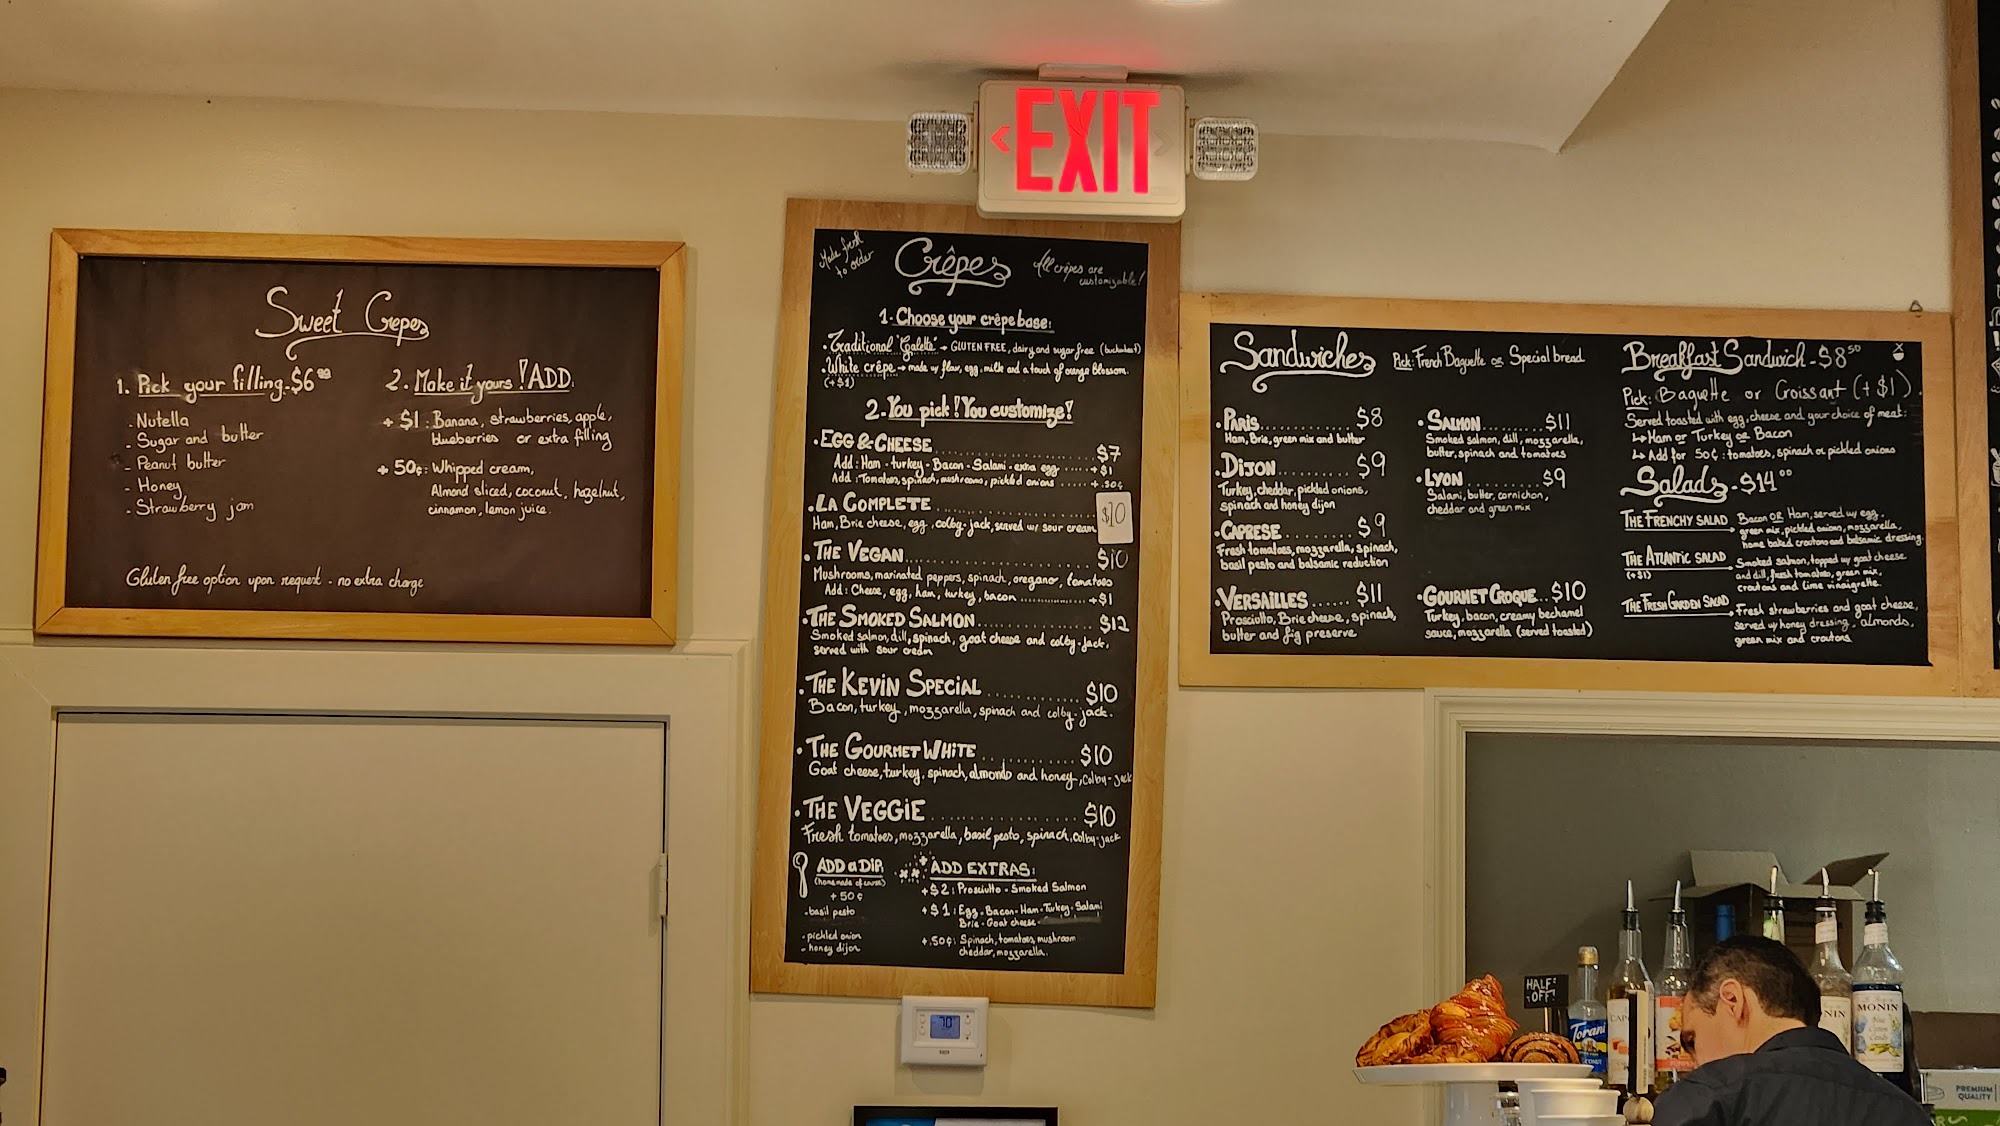 EXIT
Sweet Crepes
1. Pick your filling - $6.00
- Nutella
- Sugar and butter
- Peanut butter
- Honey
- Strawberry jam
2. Make it yours! ADD:
+ $1: Banana, strawberries, apple,
blueberries or extra filling
+ 50¢: Whipped cream,
Almond sliced, coconut, hazelnut,
cinnamon, lemon juice.
Gluten free option upon request - no extra charge
Made fresh
to order
Crêpes
All crêpes are
customizable!
1. Choose your crêpe base:
• Traditional "Galette" → GLUTEN FREE, dairy and sugar free (buckwheat)
• White crêpe → made w/ flour, egg, milk and a touch of orange blossom.
(+$1)
2. You pick! You customize!
• EGG & CHEESE $7
Add: Ham - turkey - Bacon - Salami - extra egg ..... +$1
Add: Tomatoes, spinach, mushrooms, pickled onions ..... +.50¢
• LA COMPLETE $10
Ham, Brie cheese, egg, colby-jack, served w/ sour cream
• THE VEGAN $10
Mushrooms, marinated peppers, spinach, oregano, tomatoes
Add: Cheese, egg, ham, turkey, bacon ..... +$1
• THE SMOKED SALMON $12
Smoked salmon, dill, spinach, goat cheese and colby-jack,
served with sour cream
• THE KEVIN SPECIAL ..... $10
Bacon, turkey, mozzarella, spinach and colby-jack.
• THE GOURMET WHITE ..... $10
Goat cheese, turkey, spinach, almonds and honey, Colby-jack
• THE VEGGIE ..... $10
Fresh tomatoes, mozzarella, basil pesto, spinach, Colby-jack
ADD a DIP
(homemade of course)
+ 50¢
- basil pesto
- pickled onion
- honey dijon
ADD EXTRAS:
+ $2: Prosciutto - Smoked Salmon
+ $1: Egg - Bacon - Ham - Turkey - Salami
Brie - Goat cheese
+ .50¢: Spinach, tomatoes, mushroom
cheddar, mozzarella.
Sandwiches
Pick: French Baguette or Special bread
• PARIS ..... $8
Ham, Brie, green mix and butter
• DIJON ..... $9
Turkey, cheddar, pickled onions,
spinach and honey dijon
• CAPRESE ..... $9
Fresh tomatoes, mozzarella, spinach,
basil pesto and balsamic reduction
• VERSAILLES ..... $11
Prosciutto, Brie cheese, spinach,
butter and fig preserve
• SALMON ..... $11
Smoked salmon, dill, mozzarella,
butter, spinach and tomatoes
• LYON ..... $9
Salami, butter, cornichon,
cheddar and green mix
• GOURMET CROQUE .. $10
Turkey, bacon, creamy bechamel
sauce, mozzarella (served toasted)
Breakfast Sandwich - $8.50
Pick: Baguette or Croissant (+$1).
Served toasted with egg, cheese and your choice of meat:
↳ Ham or Turkey or Bacon
↳ Add for 50¢: tomatoes, spinach or pickled onions
Salads - $14.00
THE FRENCHY SALAD → Bacon OR Ham, served w/ egg,
green mix, pickled onions, mozzarella,
home baked croutons and balsamic dressing.
THE ATLANTIC SALAD → Smoked salmon, topped w/ goat cheese
(+$1) and dill, fresh tomatoes, green mix,
croutons and lime vinaigrette.
THE FRESH GARDEN SALAD → Fresh strawberries and goat cheese,
served w/ honey dressing, almonds,
green mix and croutons
70
HALF
OFF!
Torani
MONIN
PREMIUM
QUALITY